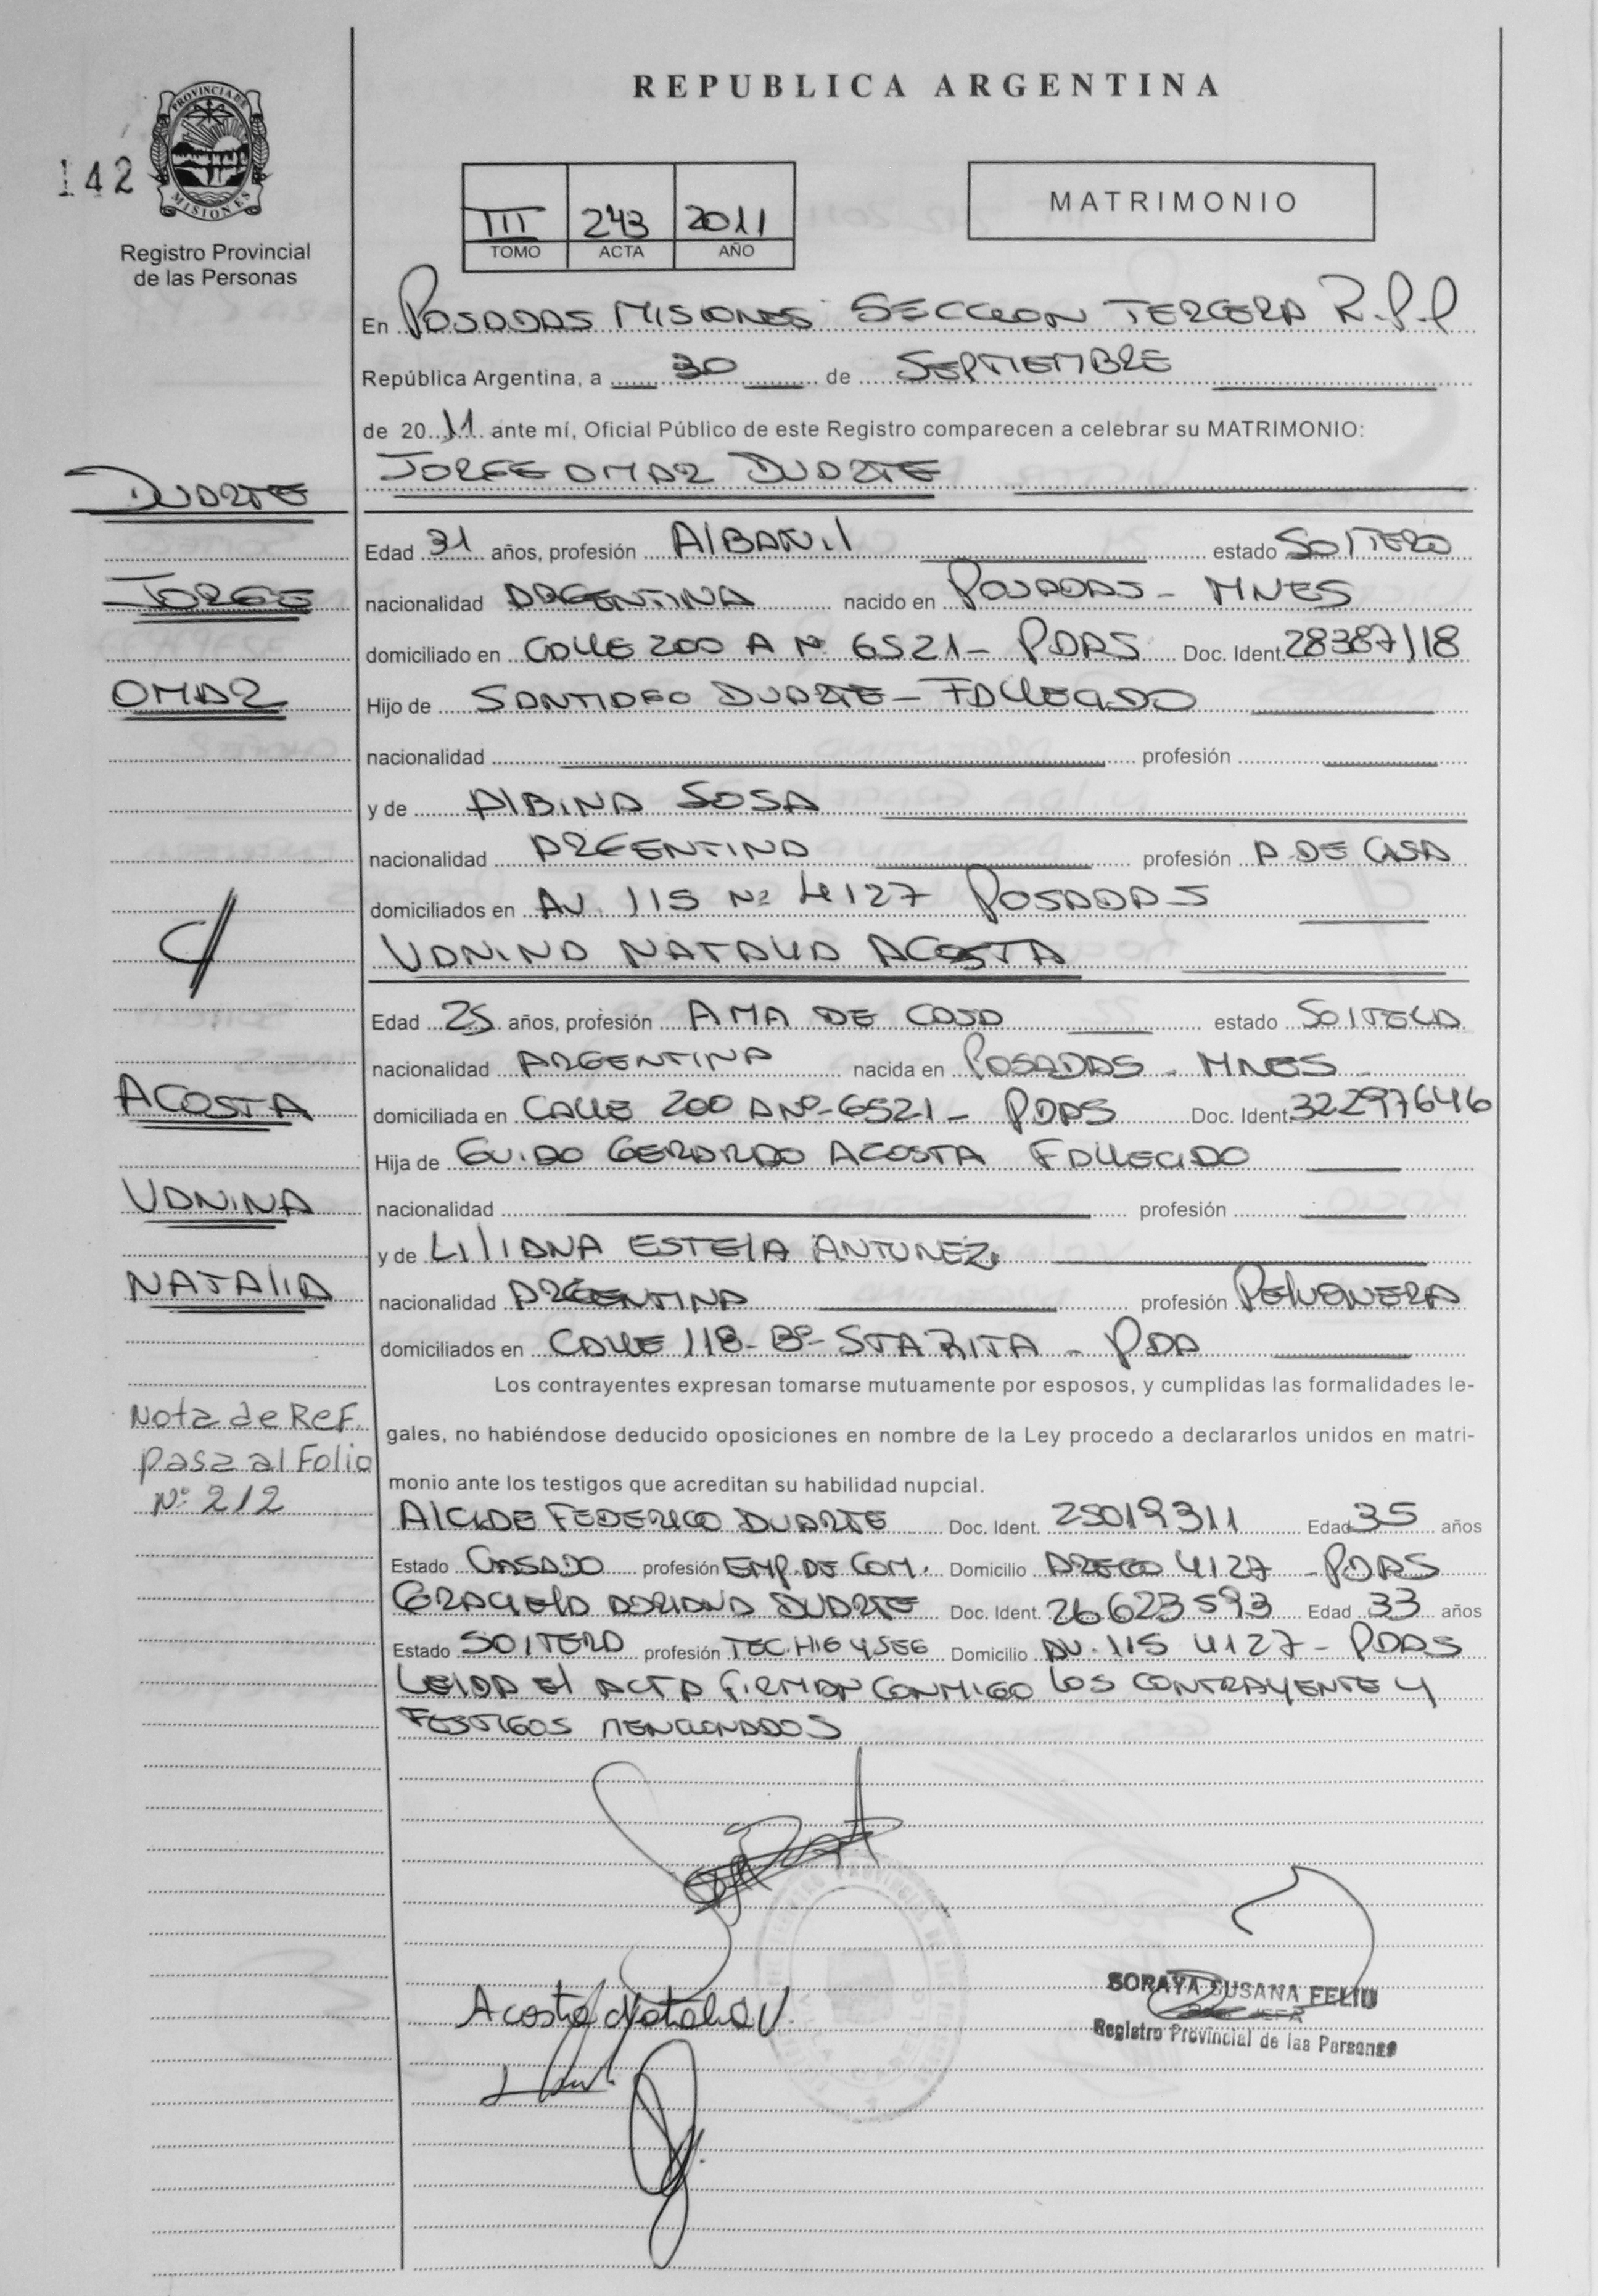 REPUBLICA ARGENTINA
142
PROVINCIA DE
MISIONES
Registro Provincial
de las Personas
III 243 2011
TOMO ACTA AÑO
MATRIMONIO
En POSADAS MISIONES SECCION TERCERA R.P.P
República Argentina, a 30 de SEPTIEMBRE
de 2011 ante mí, Oficial Público de este Registro comparecen a celebrar su MATRIMONIO:
JORGE OMAR DUARTE
DUARTE
Edad 31 años, profesión AlBANil estado SOlTERO
JORGE
nacionalidad ARGENTINA nacido en POSADAS - MNES
domiciliado en CALLE 200 A Nº 6521 - PDAS Doc. Ident. 28387118
OMAR
Hijo de SANTIAGO DUARTE - FALLECIDO
nacionalidad profesión
y de AlBINA SOSA
nacionalidad ARGENTINA profesión A. DE CASA
domiciliados en AV. 115 Nº 4127 POSADAS
VANINA NATALIA ACOSTA
Edad 25 años, profesión AMA DE CASA estado SOlTERA
nacionalidad ARGENTINA nacida en POSADAS - MNES -
ACOSTA
domiciliada en CALLE 200 A Nº 6521 - PDAS Doc. Ident. 32297646
Hija de GUIDO GERARDO ACOSTA FALLECIDO
VANINA
nacionalidad profesión
y de LIlIANA ESTElA ANTUNEZ.
NATAlIA
nacionalidad ARGENTINA profesión PELUQUERA
domiciliados en CALLE 118 - Bº - STA RITA - PDA
Los contrayentes expresan tomarse mutuamente por esposos, y cumplidas las formalidades le-
Nota de Ref.
gales, no habiéndose deducido oposiciones en nombre de la Ley procedo a declararlos unidos en matri-
pasa al Folio
monio ante los testigos que acreditan su habilidad nupcial.
Nº 212
AlCIDE FEDERICO DUARTE Doc. Ident. 25019311 Edad 35 años
Estado CASADO profesión EMP. DE COM. Domicilio 4127 - PDAS
GRACIElA ADRIANA DUARTE Doc. Ident. 26623593 Edad 33 años
Estado SOlTERA profesión TEC. HIG Y SEG Domicilio AV. 115 4127 - PDAS
LEIDA El ACTA FIRMAN CONMIGO LOS CONTRAYENTE Y
TESTIGOS MENCIONADOS
Acosta Natalia V.
SORAYA SUSANA FELIU
JEFA
Registro Provincial de las Personas